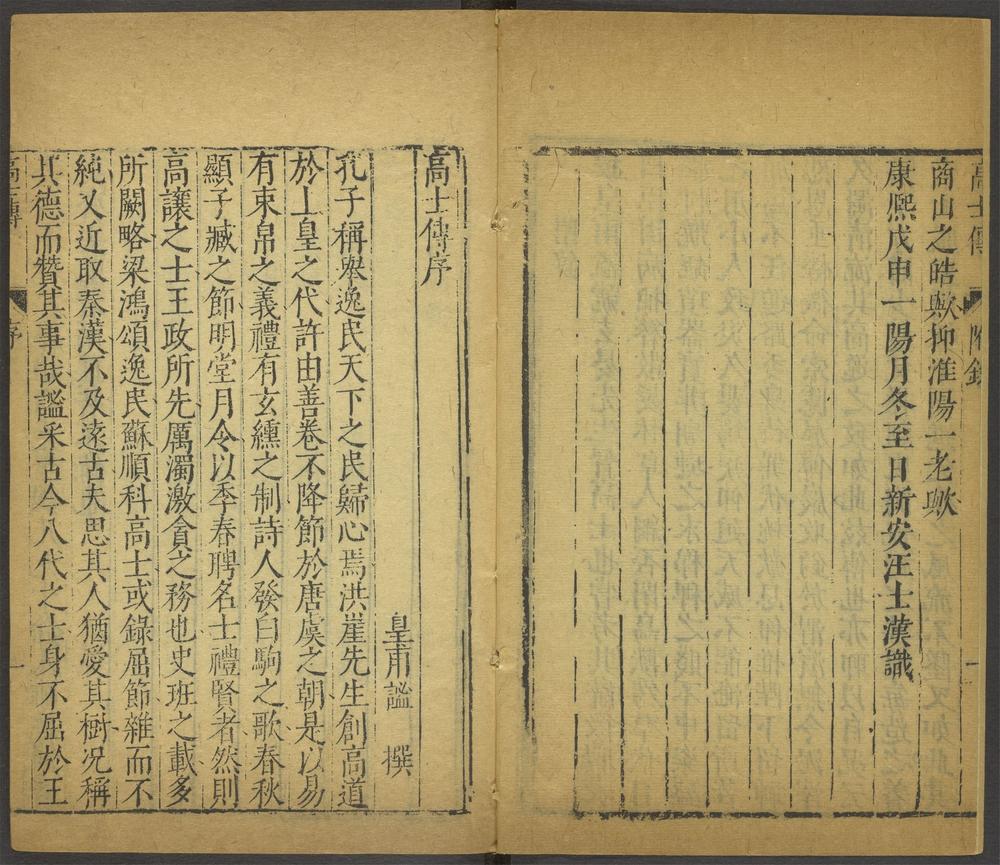 高士傳 附錄 一
商山之皓歟抑淮陽一老歟
康熙戊申一陽月冬至日新安汪士漢識
高士傳序
皇甫謐 撰
孔子稱舉逸民天下之民歸心焉洪崖先生創高道
於上皇之代許由善卷不降節於唐虞之朝是以易
有束帛之義禮有玄纁之制詩人發白駒之歌春秋
顯子臧之節明堂月令以季春聘名士禮賢者然則
高讓之士王政所先厲濁激貪之務也史班之載多
所闕略梁鴻頌逸民蘇順科高士或錄屈節雜而不
純又近取秦漢不及遠古夫思其人猶愛其樹況稱
其德而贊其事哉謐采古今八代之士身不屈於王
高士傳 序 一